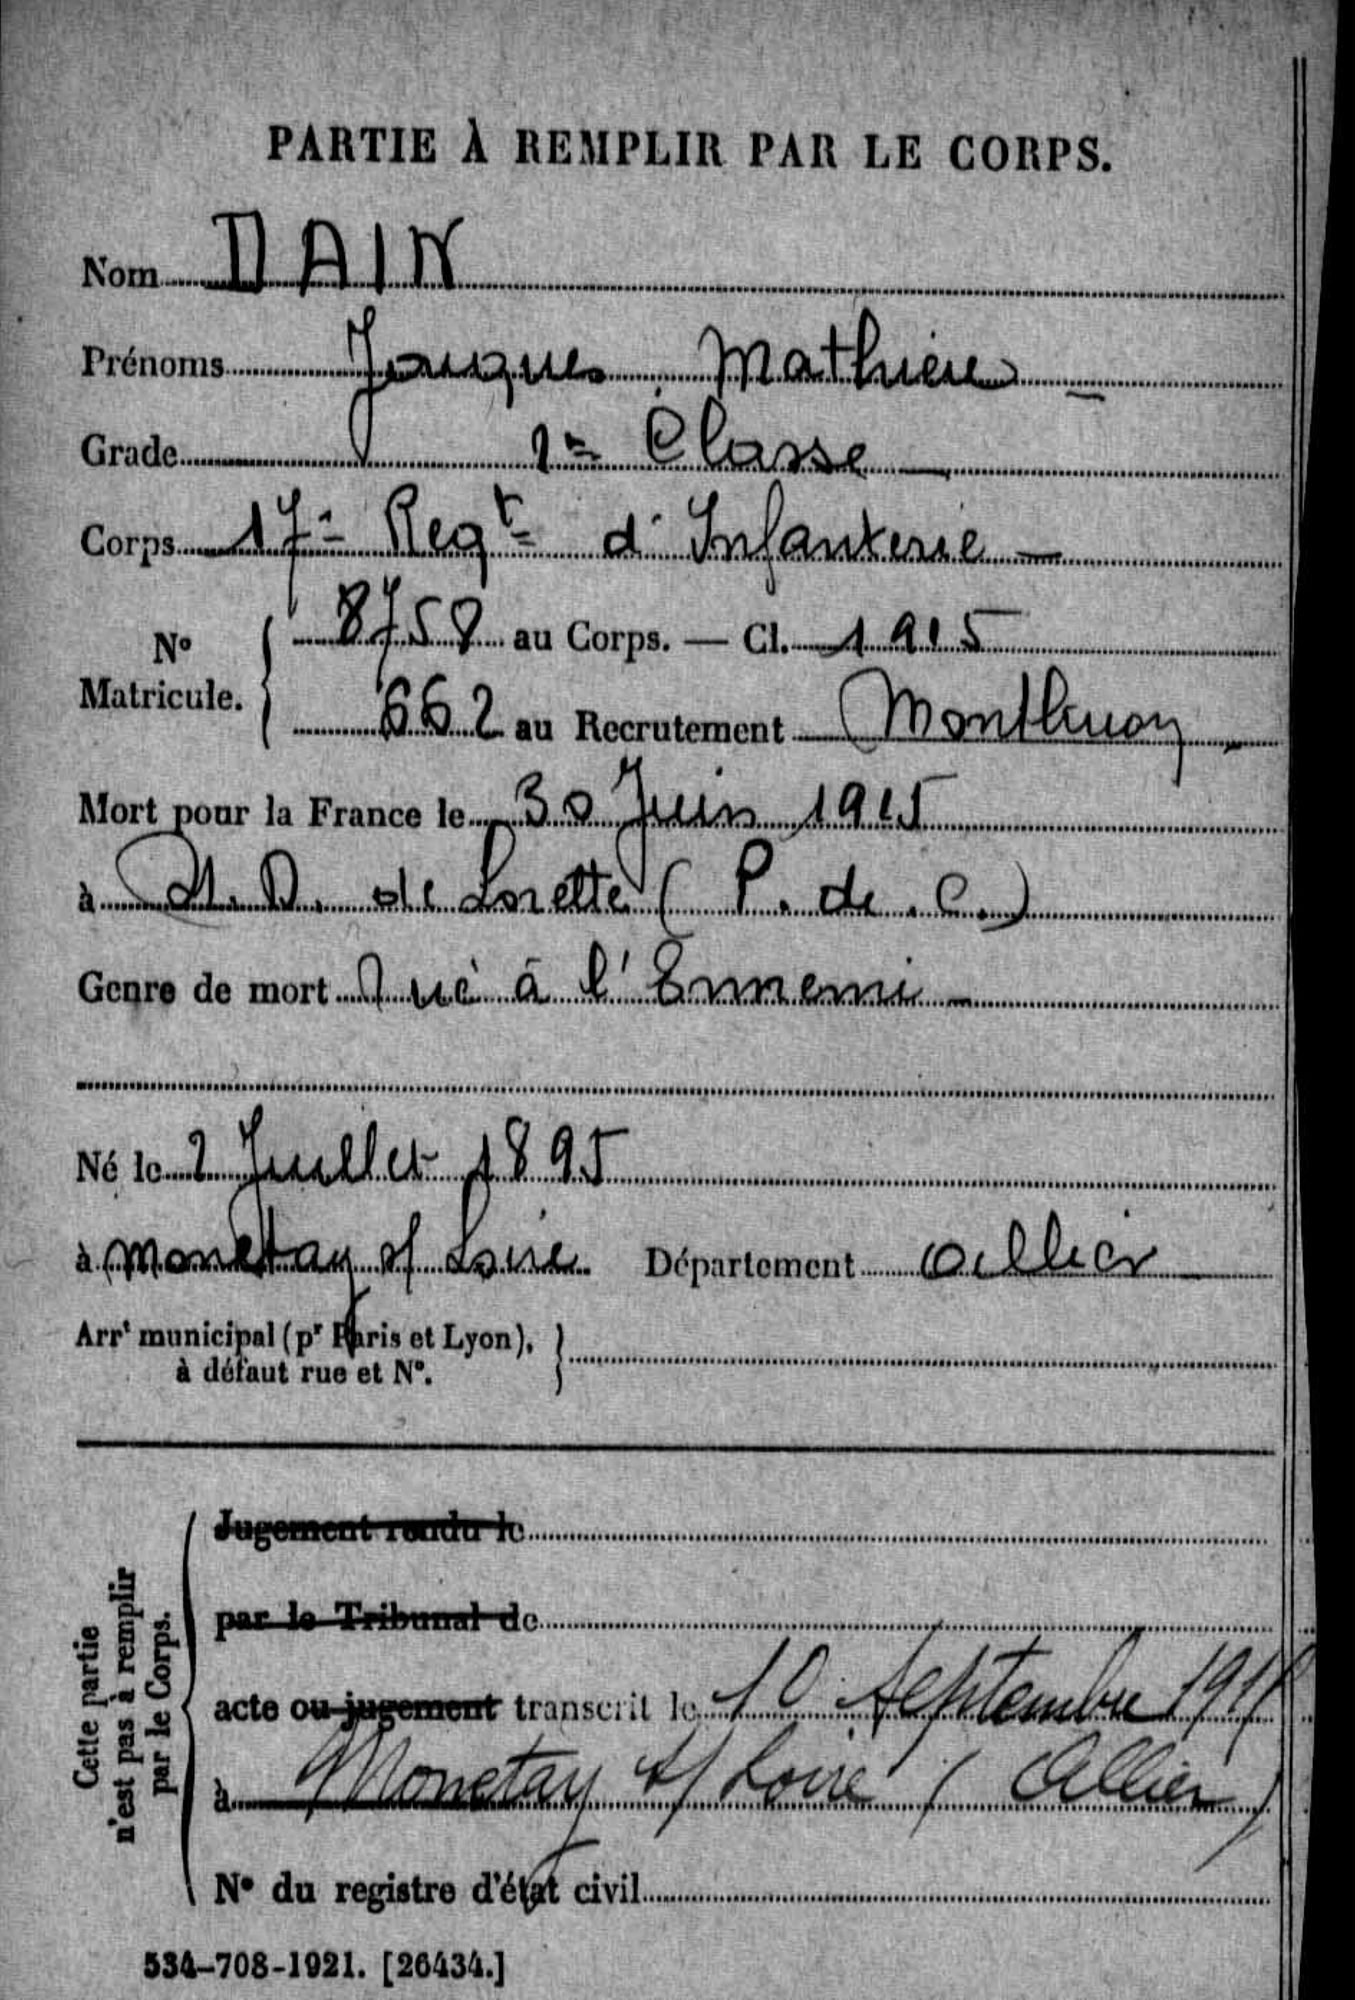 PARTIE À REMPLIR PAR LE CORPS.
Nom DAIN
Prénoms Jacques Mathieu –
Grade 2e Classe –
Corps 17e Regt d'Infanterie –
No Matricule. { 8758 au Corps. — Cl. 1915
662 au Recrutement Montluçon
Mort pour la France le 30 Juin 1915
à N. D. de Lorette ( P. de C.)
Genre de mort Tué à l'Ennemi –
Né le 2 Juillet 1895
à Monetay s/ Loire Département Allier
Arrt municipal (pr Paris et Lyon), à défaut rue et No.
Cette partie n'est pas à remplir par le Corps.
Jugement rendu le
par le Tribunal de
acte ou jugement transcrit le 10 Septembre
à Monetay s/ Loire ( Allier )
No du registre d'état civil
534-708-1921. [26434.]